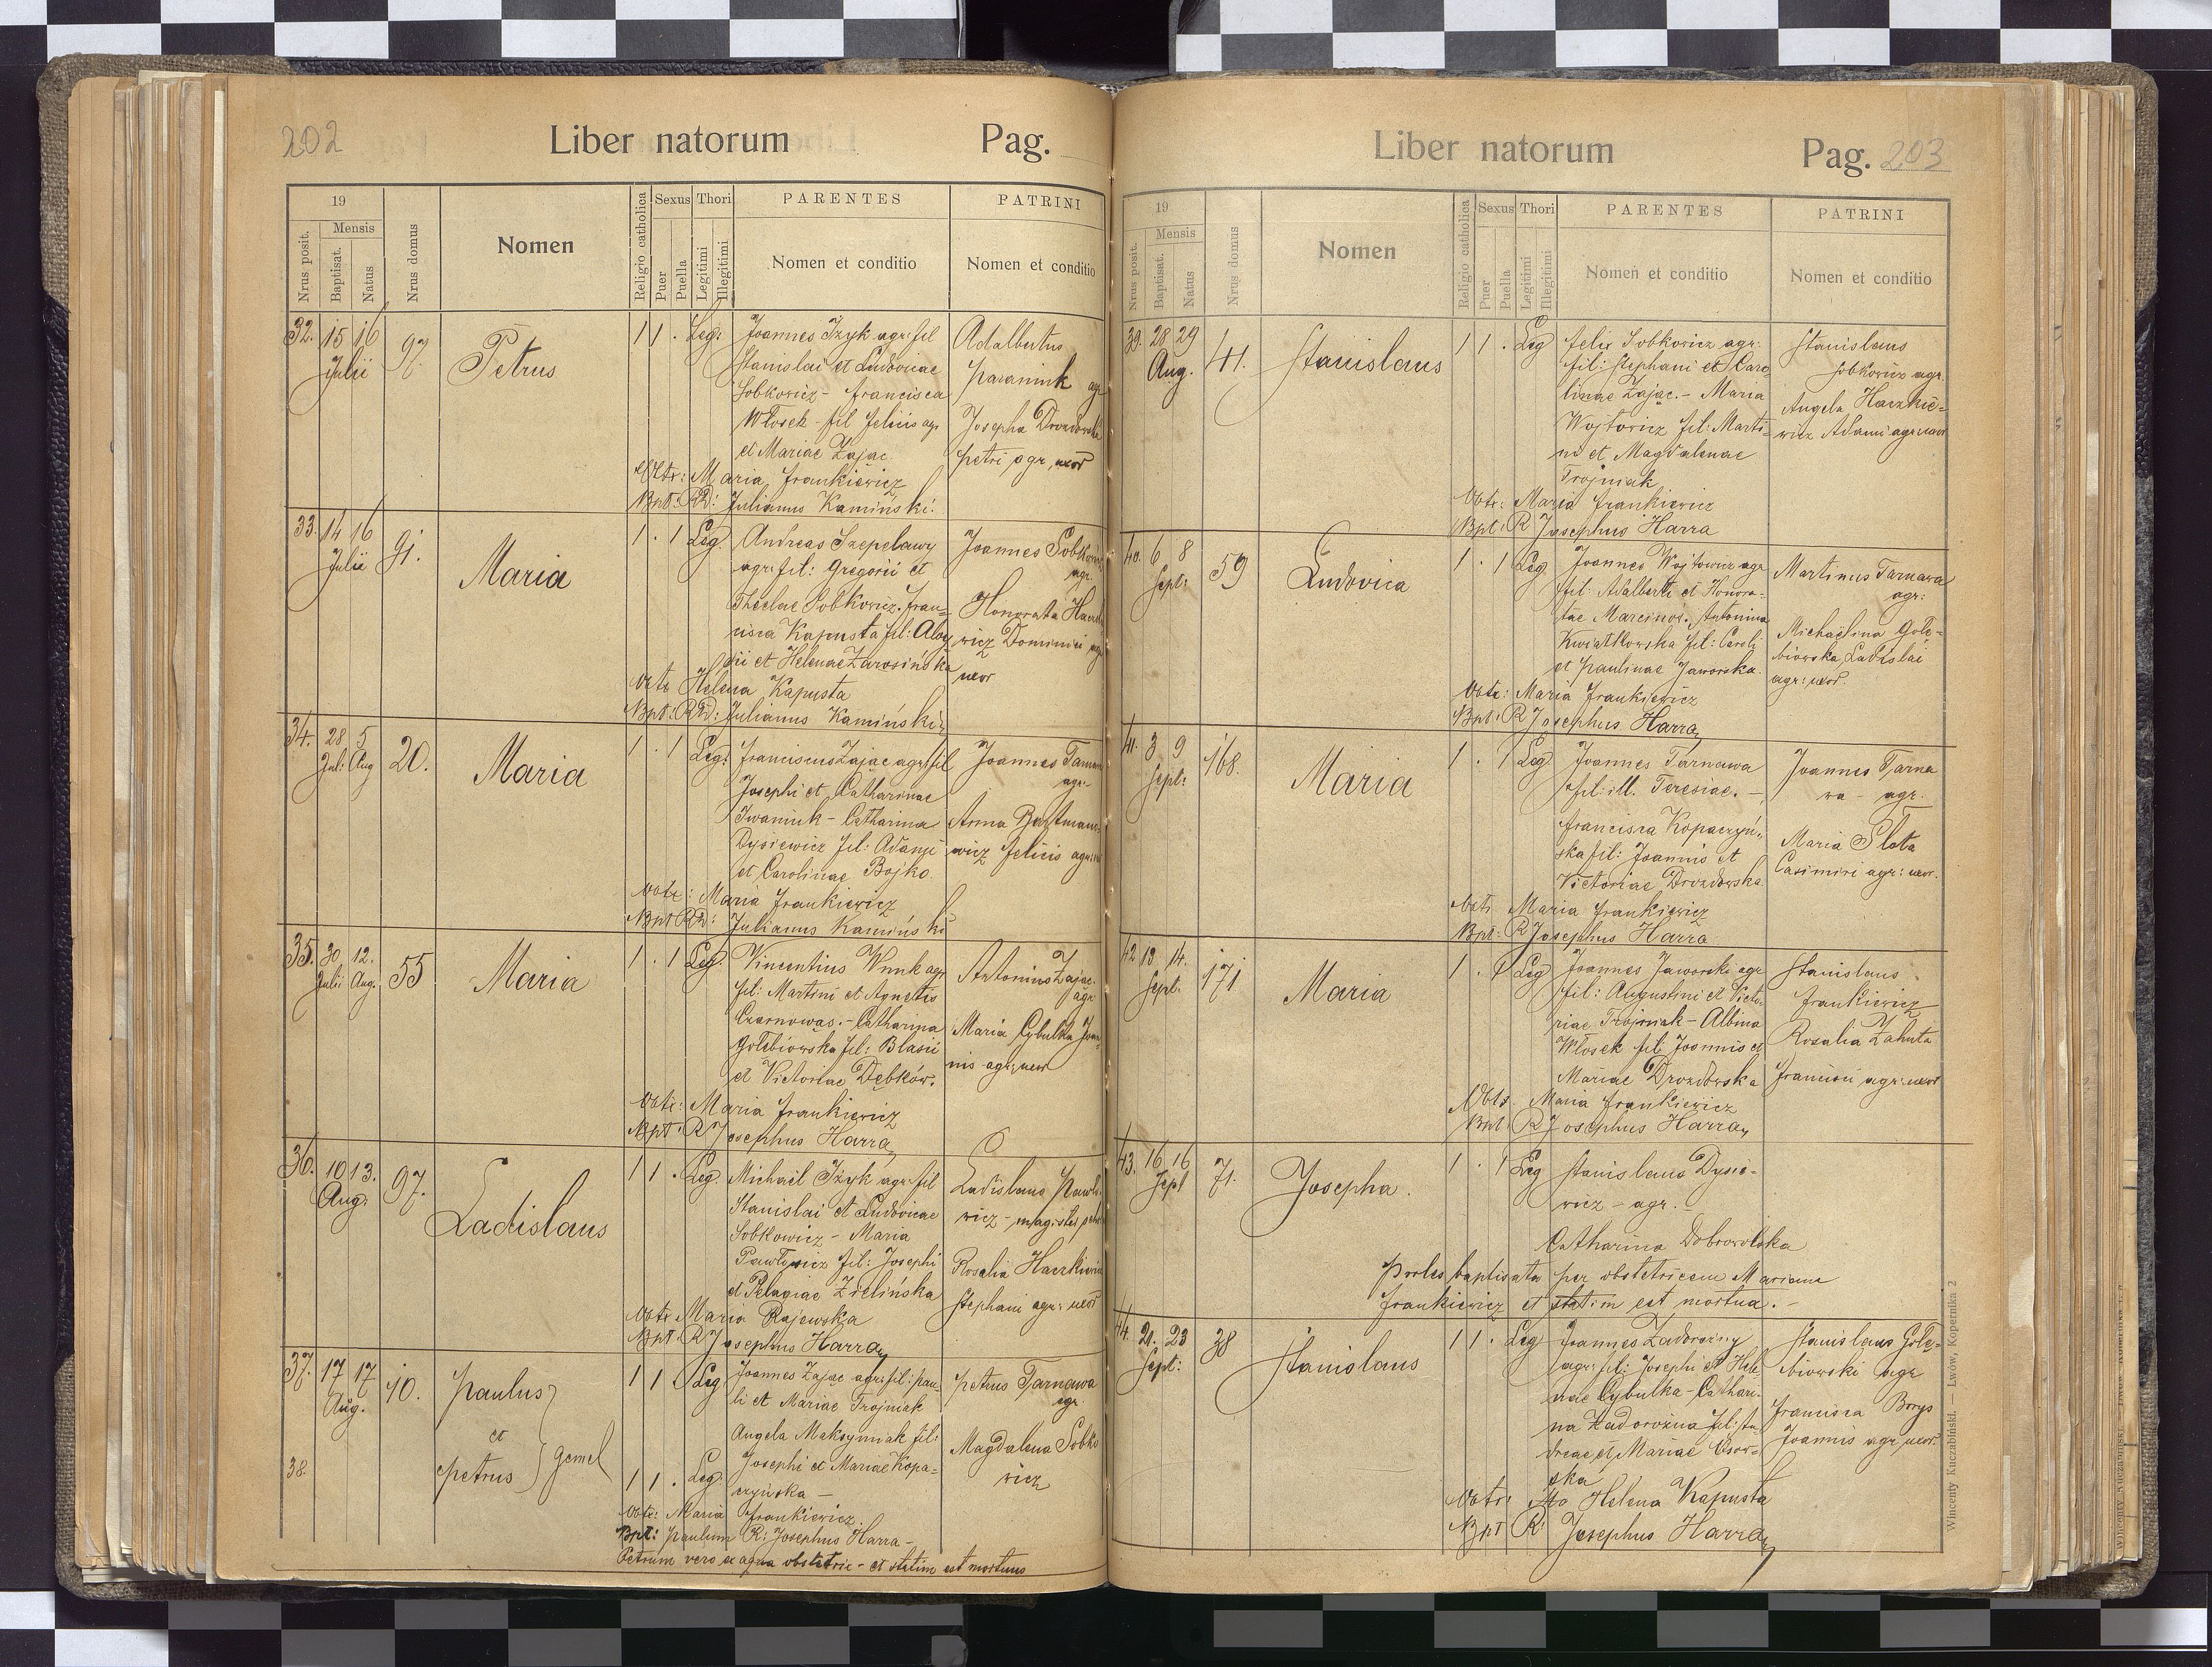 202
Liber natorum
Pag.
19
Mensis
Nrus posit.
Baptisat.
Natus
Nrus domus
Nomen
Religio catholica
Sexus
Puer
Puella
Thori
Legitimi
Illegitimi
PARENTES
Nomen et conditio
PATRINI
Nomen et conditio
32. 15 16
Julii
97.
Petrus
1 1 . Leg:
Joannes Iżyk agr: fil
Stanislai et Ludovicae
Sobkowicz - Francisca
Włosek - fil Felicis agr
et Mariae Zając
Adalbertus
agr
Josepha Drozdowska
Petri agr, uxor
Obtr: Maria Frankiewicz
Bpt: RD: Julianus Kamiński.
33. 14 16
Julii
91.
Maria
1 . 1 Leg.
Andreas Szepelawy
agr: fil: Gregorii et
Theclae Sobkowicz. Fran-
cisca Kapusta fil: Aloy
sii et Helenae Zarosińska
Joannes Sobkowicz
agr.
Honorata
wicz Dominici agr
uxor
Obtr Helena Kapusta
Bpt: RD: Julianus Kamiński
34. 28 5
Jul: Aug
20.
Maria
1 . 1 Leg:
Franciscus Zając agr: fil
Josephi et Catharinae
Iwaniuk - Catharina
Dysiewicz fil: Adami
et Carolinae Bojko.
Joannes
agr.
Anna
wicz Felicis agr:
Obtr: Maria Frankiewicz
Bpt RD: Julianus Kamiński
35. 30 12.
Julii Aug.
55
Maria
1 . 1 Leg.
Vincentius Wnuk agr
fil: Martini et Agnetis
Czarnowas. - Catharina
Gołębiowska fil: Blasii
et Victoriae Dębków.
Antonius Zając
agr
Maria Cybulka Joan-
nis agr; uxor
Obtr: Maria Frankiewicz
Bpt: R Josephus Harra
36. 10 13.
Aug:
97.
Ladislaus
1 1 . Leg.
Michaël Iżyk agr: fil
Stanislai et Ludovicae
Sobkowicz - Maria
Pawłowicz fil: Josephi
et Pelagiae Zielińska
Ladislaus
wicz - magister
Rosalia Haczkiewicz
Stephani agr: uxor
Obtr Maria Rajewska
Bpt: R Josephus Harra
37. 17 17
Aug.
10.
Paulus
et
38.
Petrus
gemel
1 1 . Leg
1 1 . Leg.
Joannes Zając agr: fil: Pau-
li et Mariae Trojniak
Angela Maksymiak fil:
Josephi et Mariae Kopa-
czyńska -
Petrus Tarnawa
agr.
Magdalena Sobko
wicz
Obtr: Maria Frankiewicz.
Bpt: Paulum R: Josephus Harra -
Petrum vero ex aqua obstetric - et statim est mortuus
Liber natorum
Pag. 203
19
Mensis
Nrus posit.
Baptisat.
Natus
Nrus domus
Nomen
Religio catholica
Sexus
Puer
Puella
Thori
Legitimi
Illegitimi
PARENTES
Nomen et conditio
PATRINI
Nomen et conditio
39. 28 29
Aug.
41.
Stanislaus
1 1 . Leg
Felix Sobkowicz agr:
fil: Stephani et Caro
linae Zając. - Maria
Wojtowicz fil: Marti-
ni et Magdalenae
Trojniak
Stanislaus
Sobkowicz agr.
Angela Haczkie-
wicz Adami agr: uxor
Obtr: Maria Frankiewicz
Bpt: R Josephus Harra
40. 6 8
Sept:
59
Ludovica
1 . 1 Leg
Joannes Wojtowicz agr
fil: Adalberti et Honora-
tae Marcinów. Antonina
Kwiatkowska fil: Caroli
et Paulinae Jaworska.
Martinus Tarnawa
agr:
Michaëlina Gołę-
biowska Ladislai
agr: uxor.
Obtr: Maria Frankiewicz
Bpt: R Josephus Harra
41. 3 9
Sept:
168.
Maria
1 . 1 Leg
Joannes Tarnawa
fil: ill. Teresiae. -
Francisca Kopaczyń-
ska fil: Joannis et
Victoriae Drozdowska
Joannes Tarna
wa - agr.
Maria Slota
Casimiri agr: uxor.
Obtr Maria Frankiewicz
Bpt: R Josephus Harra
42 13 14.
Sept.
171.
Maria
1 . 1 Leg
Joannes Jaworski agr
fil: Augustini et Victo-
riae Trojniak - Albina
Włosek fil Joannis et
Mariae Drozdowska
Stanislaus
Frankiewicz
Rosalia Zahuta
Francisci agr: uxor
Obtr. Maria Frankiewicz
Bpt: R Josephus Harra
43. 16 16
Sept
71.
Josepha.
1 . 1 Leg
Stanislaus Dysie-
wicz - agr.
Catharina Dobrowolska
Proles baptisata per obstetricem Mariam
Frankiewicz et statim est mortua. -
44. 21. 23
Sept:
38
Stanislaus
1 1 . Leg
Joannes Zadorożny
agr: fil: Josephi et Hele
nae Cybulka - Cathari
na Zadorożna fil: An
dreae et Mariae
ska
Stanislaus Gołę-
biowski agr
Francisca Borys
Joannis agr, uxor.
Obtr: Helena Kapusta
Bpt R: Josephus Harra
Wincenty Kuczabiński. — Lwów, Kopernika 2